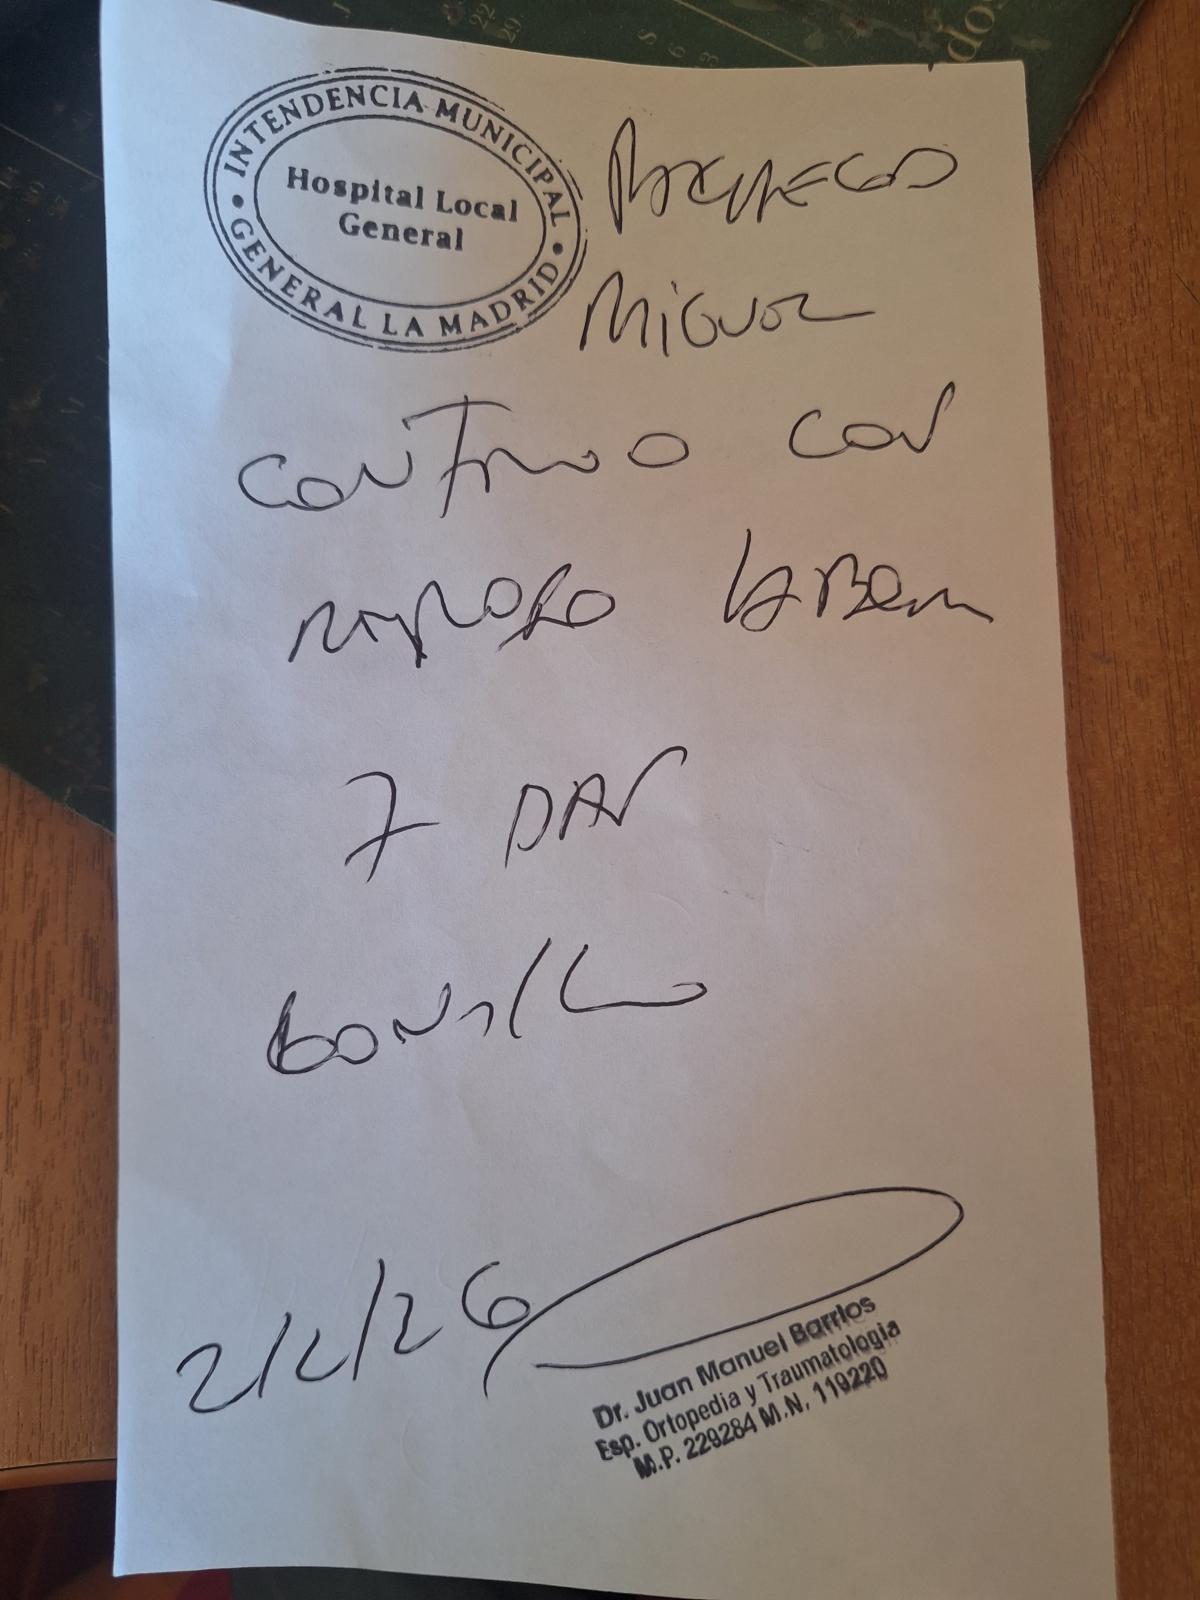 INTENDENCIA MUNICIPAL
Hospital Local
General
GENERAL LA MADRID
PACHECO
MIGUEL
CONTINUO CON
REPOSO LABORAL
7 DIAS
2/2/26
Dr. Juan Manuel Barrios
Esp. Ortopedia y Traumatología
M.P. 229284 M.N. 119220